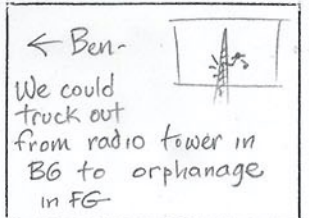 ← Ben-
We could
truck out
from radio tower in
BG to orphanage
in FG